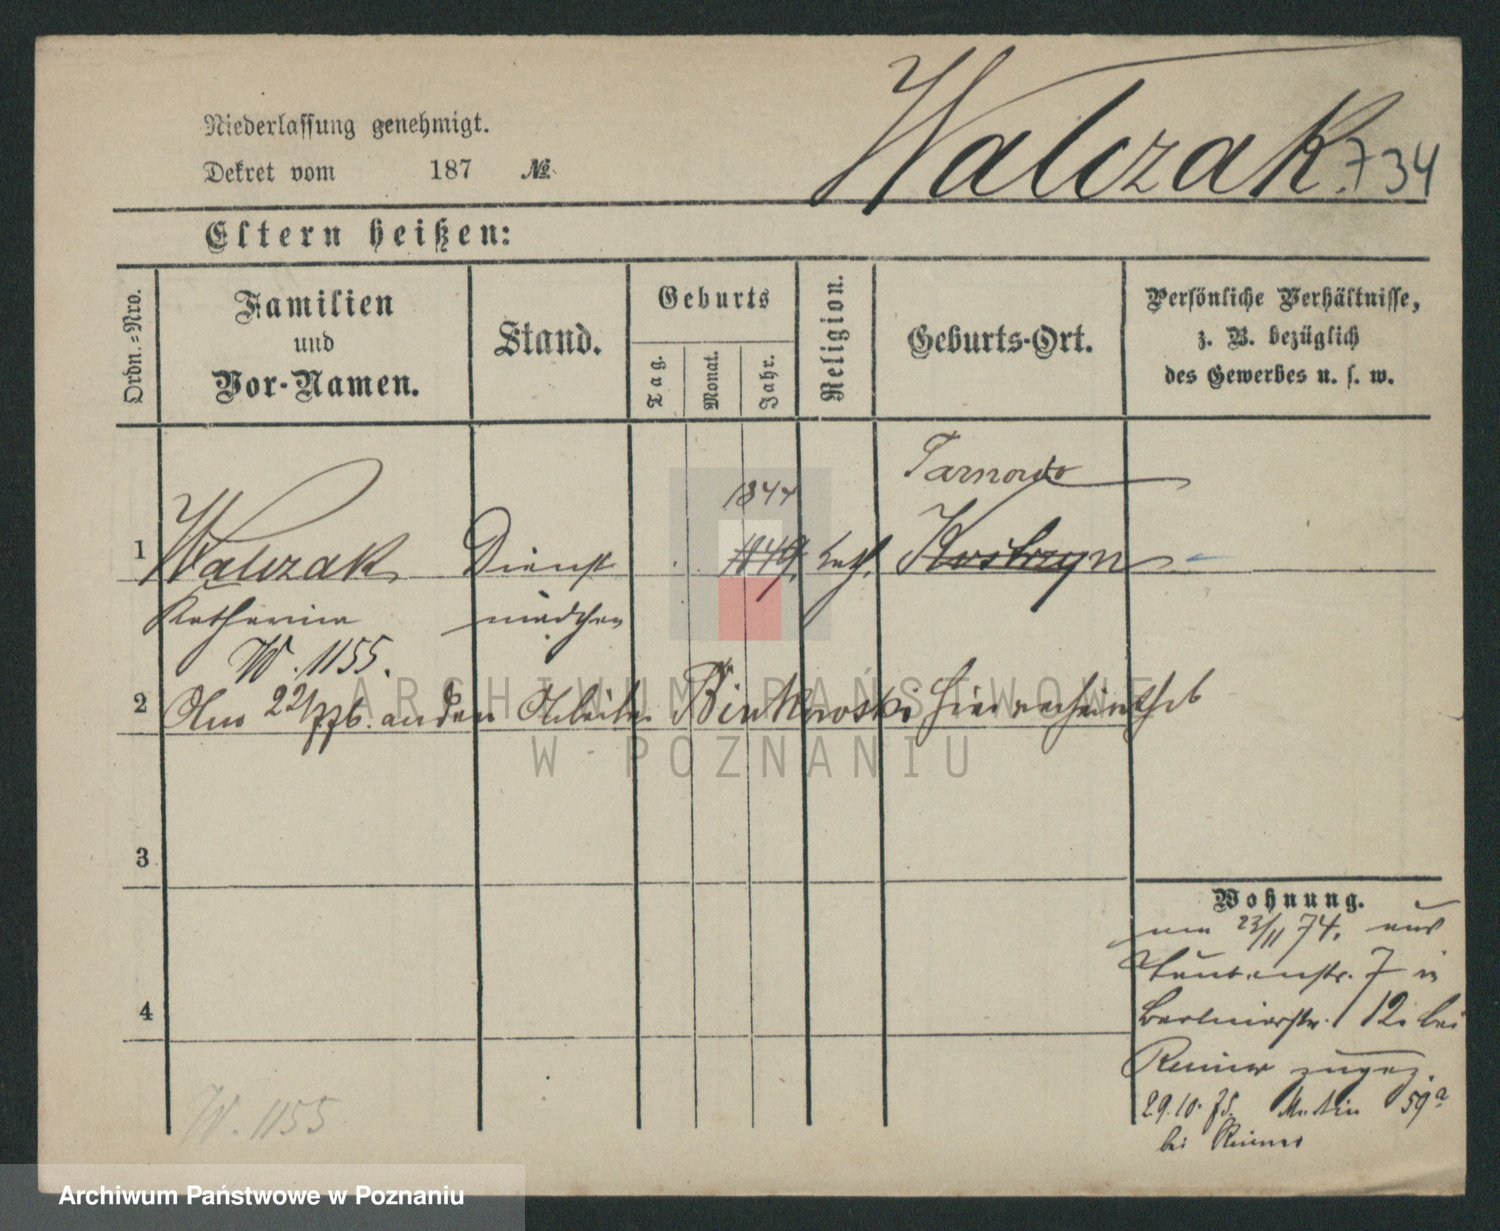 Niederlassung genehmigt.
Dekret vom 187 №
Walczak 734
Eltern heißen:
Ordn.=Nro.
Familien
und
Vor-Namen.
Stand.
Geburts
Tag.
Monat.
Jahr.
Religion.
Geburts-Ort.
Persönliche Verhältnisse,
z. B. bezüglich
des Gewerbes u. s. w.
Tarnowo
1844
1 Walczak Dienst 1849 kath. Kostrzyn
Katharina mädchen
W. 1155.
2 an den Arbeiter Binkowski hier verheirathet
3
4
Wohnung.
am 23/11 74. aus
7 in
Berlinerstr. 12. bei
Reimer zugez.
29.10.75. 59a
bei Reimer
W. 1155
ARCHIWUM PAŃSTWOWE
W POZNANIU
Archiwum Państwowe w Poznaniu